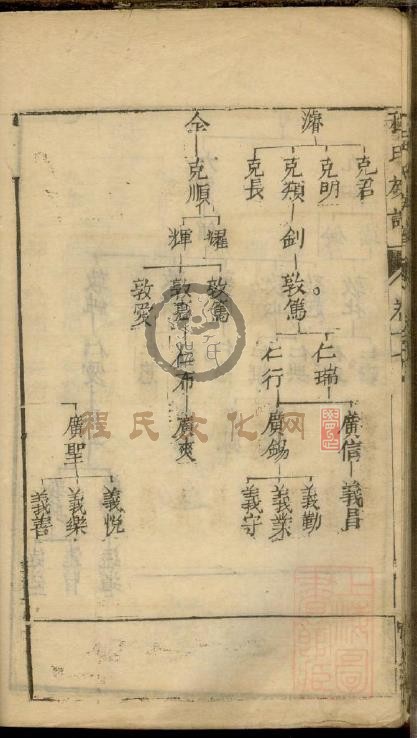 程氏族譜
濬
克君
克明
克頴
克長
釗
敦篤
仁瑞
仁行
廣信
義昌
廣錫
義勤
義業
義守
仝
克順
耀
輝
敦篤
敦愛
仁布
廣爽
廣聖
義悦
義樂
義善
程氏文化网